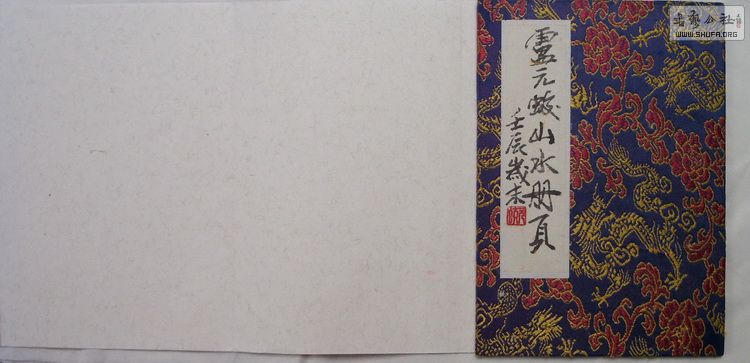 元山水册頁
壬辰歲末
書藝公社
WWW.SHUFA.ORG